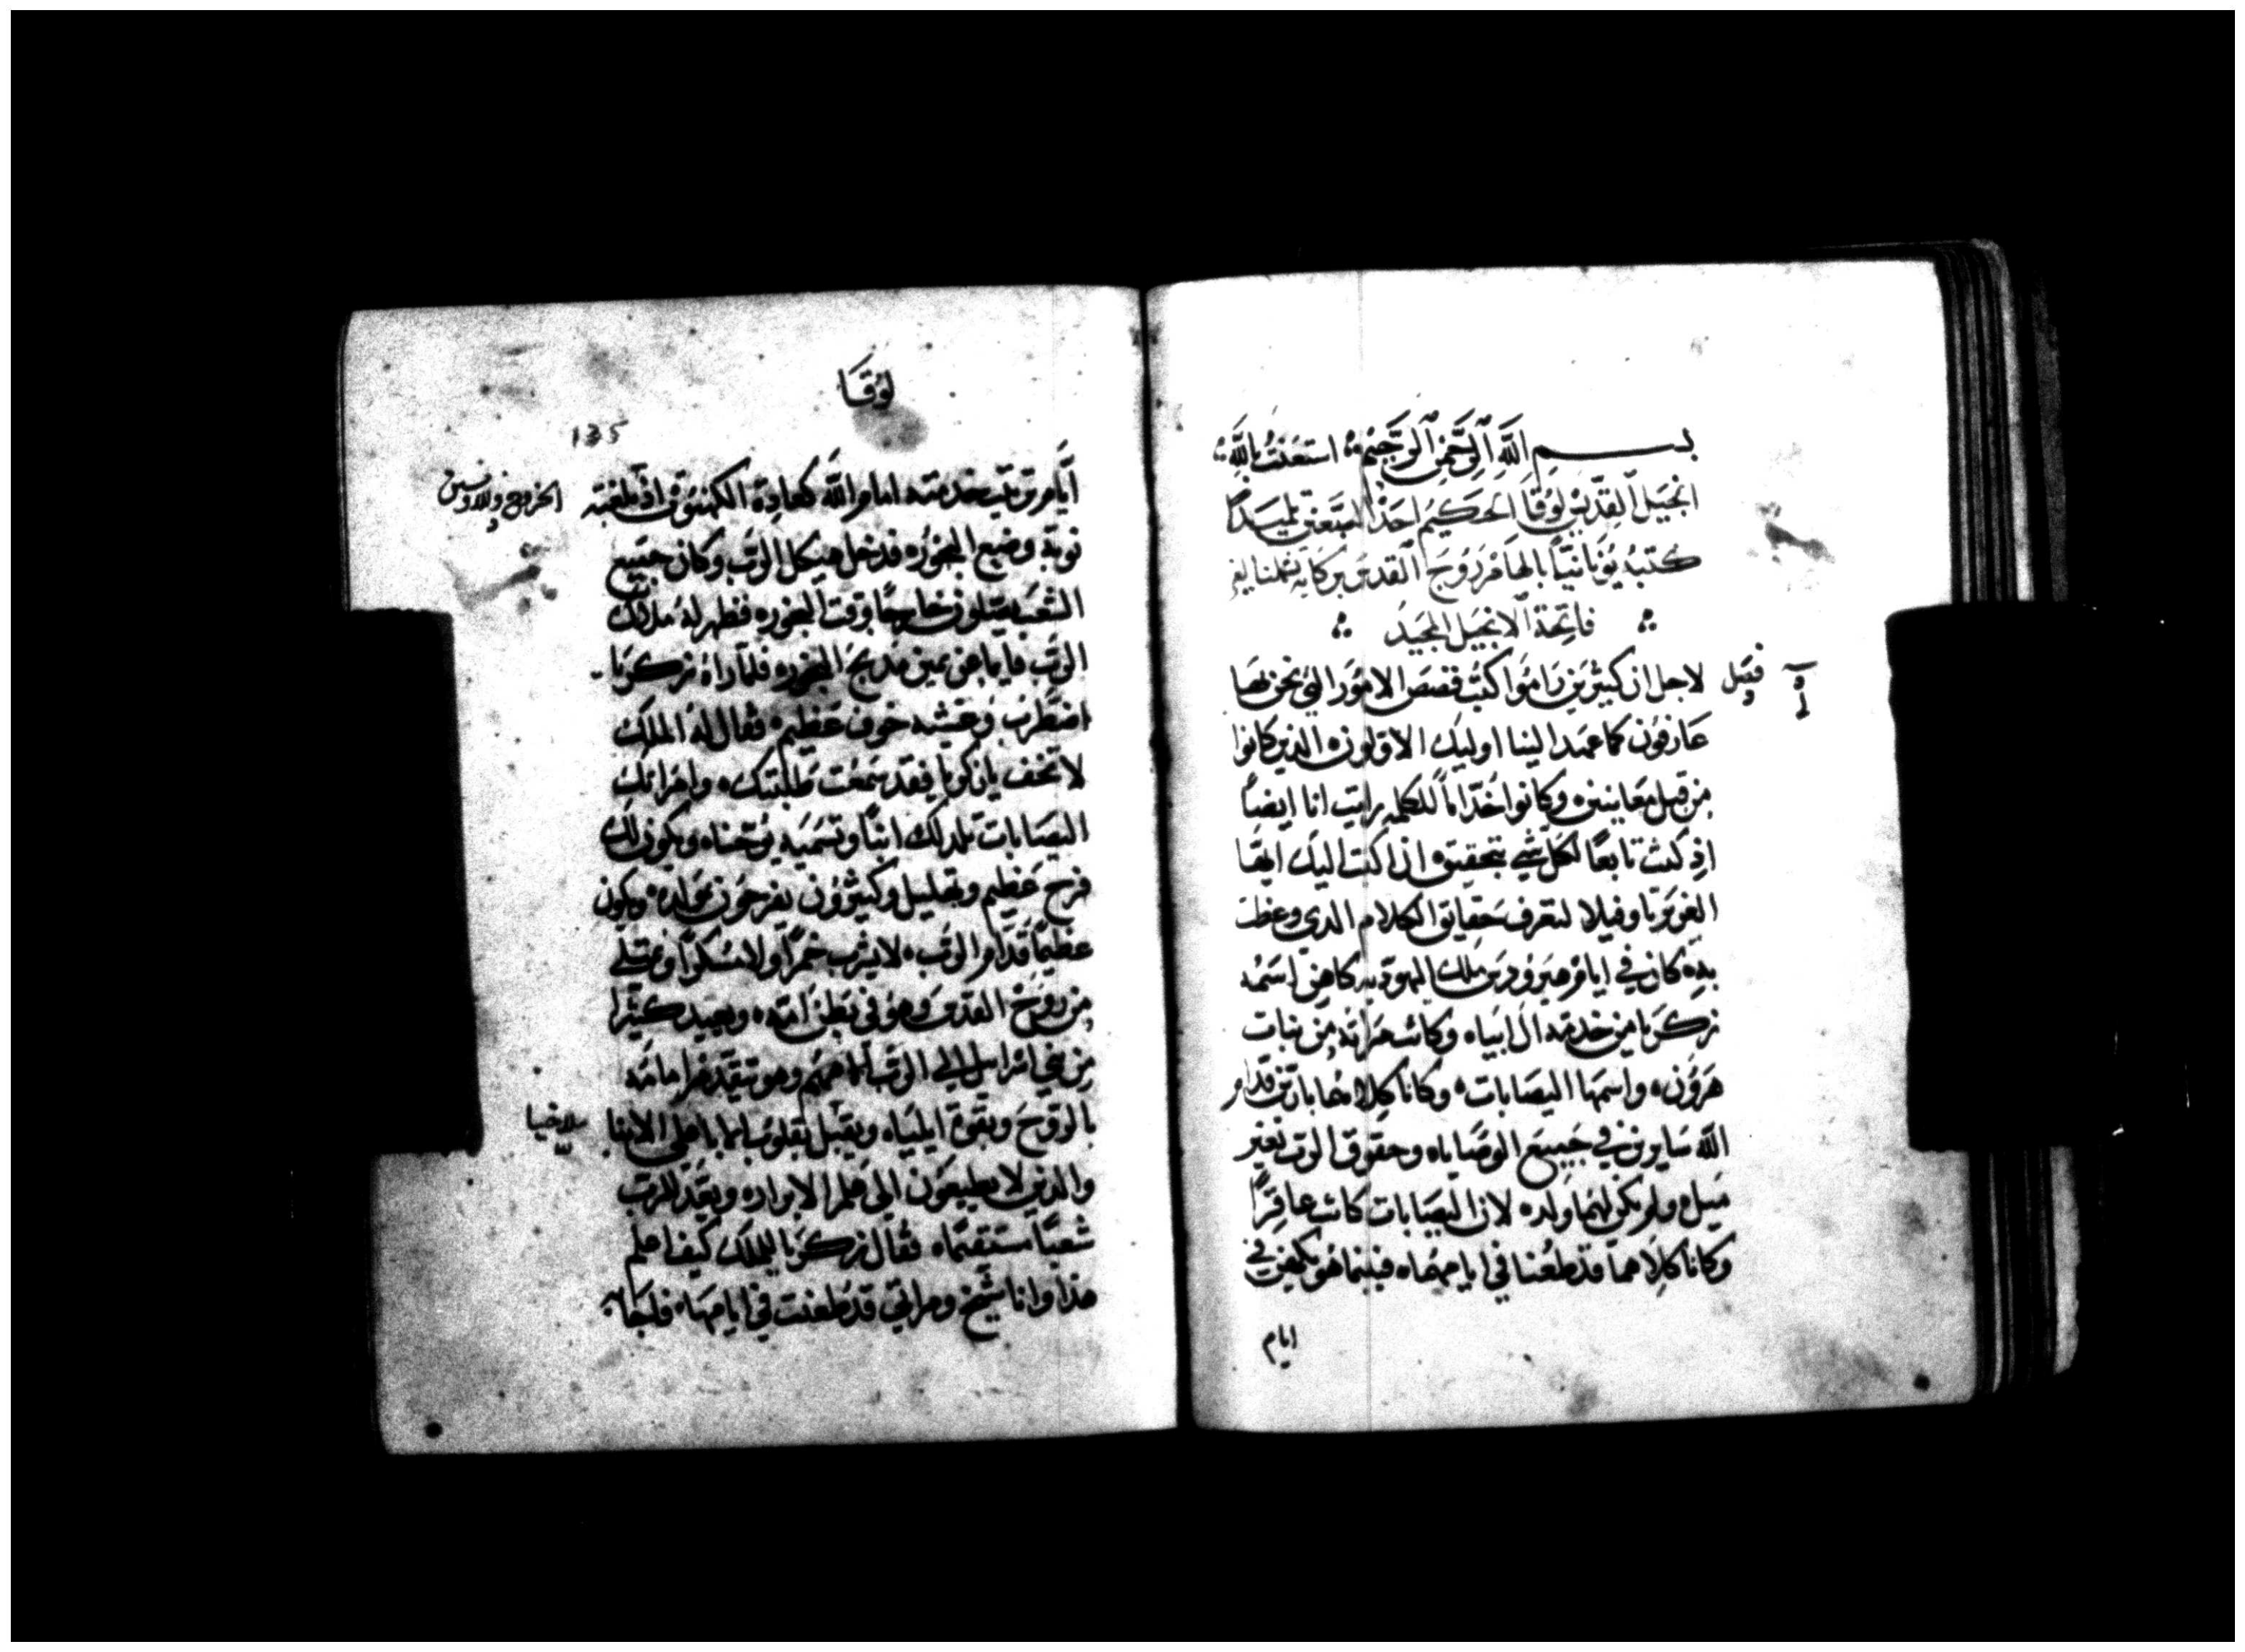 بسم الله الرحمن الرحيم استعنت بالله
انجيل القديس لوقا الحكيم احد السبعين تلميدًا
كتبه يونانيًا بالهام روح القدس بركاته تشملنا
فاتحة الانجيل المجيد
فصل
لاجل ان كثيرين راموا كتب قصص الامور التي نحن بها
عارفون كما عهد الينا اوليك الاولون الذين كانوا
من قبل معاينين وكانوا خُدّامًا للكلمه رايت انا ايضًا
اذ كنت تابعًا لكل شي بتحقيق ان اكتب اليك ايها
العزيز تاوفيلا لتعرف حقايق الكلام الدي وعظت
به كان في ايام هيرودس ملك اليهوديه كاهن اسمه
زكريا من خدمة ال ابيا وكانت مراته من بنات
هرون واسمها اليصابات وكانا كلاهما بارين قدام
الله سايرين في جميع الوصايا وحقوق الرب بغير
ميل ولم يكن لهما ولد لان اليصابات كانت عاقرًا
وكانا كلاهما قد طعنا في ايامهما فبينما هو يكهن في
ايام
لوقا
135
ايام ترتيب خدمته امام الله كعادة الكهنوت اذ بلغته
الخروج واللاويين
نوبة وضع البخور فدخل هيكل الرب وكان جميع
الشعب يصلون خارجًا وقت البخور فظهر له ملاك
الرب قايما عن يمين مذبح البخور فلما راه زكريا
اضطرب وغشيه خوف عظيم فقال له الملاك
لا تخف يا زكريا فقد سمعت طلبتك وامراتك
اليصابات تلد لك ابنًا وتسميه يوحنا ويكون لك
فرح عظيم وتهليل وكثيرون يفرحون بمولده ويكون
عظيمًا قدام الرب لا يشرب خمرًا ولا مسكرًا ويمتلي
من روح القدس وهو في بطن امه ويعيد كثيرًا
من بني اسرايل الي الرب الاههم وهو يتقدم امامه
بالروح وبقوة ايليا ويقبل بقلوب الابا على الابنا
ملاخيا
والذين لا يطيعون الي علم الابرار ويعد للرب
شعبًا مستقيمًا فقال زكريا للملاك كيف اعلم
هذا وانا شيخ ومراتي قد طعنت في ايامها فاجابه